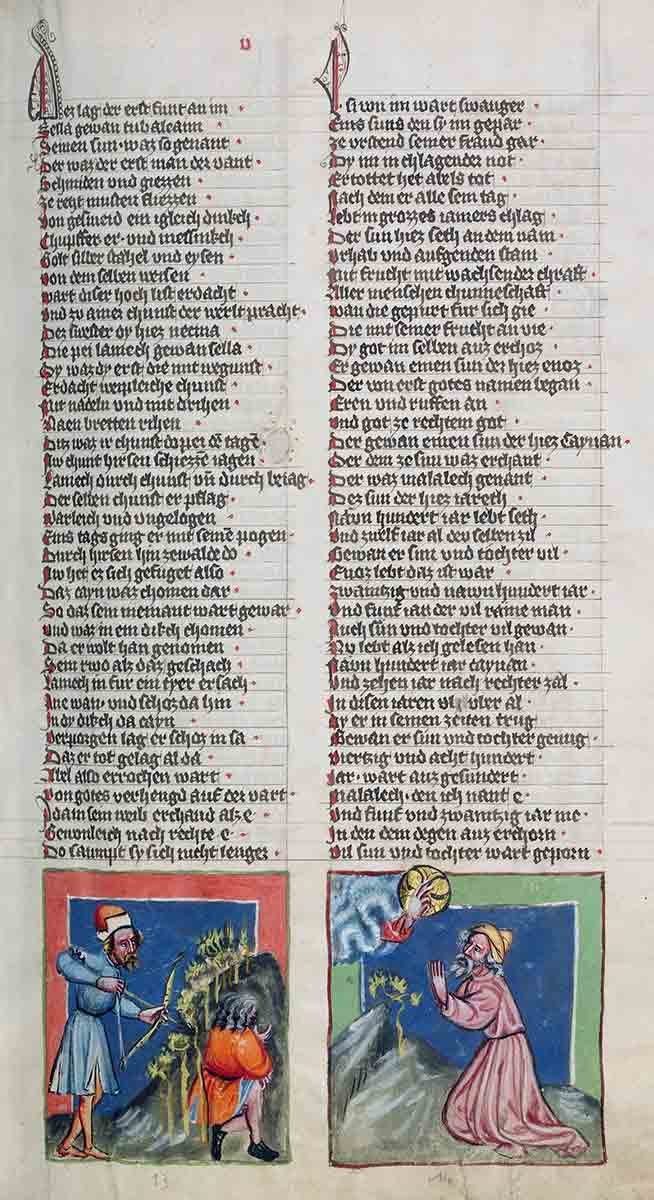 V
Dez lag der erst funt an im
Sella gewan tubalcaim
Seinen sun waz so genant
Der waz der erst man der vant
Schmiden vnd giezzen
ze reht musten fliezzen
Von gesmeid ein igleich dinkch
Chupffer er vnd messinkch
Golt silber stahel vnd eysen
Von dem selben weisen
wart diser hoch list erdacht
Vnd zu ainer chunst der werlt pracht
Dez swester dy hiez neema
Die pei lamech gewan sella
Sy waz dy erst die mit
Erdacht weipleiche chunst
Mit nadeln vnd mit drihen
Naen bretten rihen
Ditz waz ir chunst do pei dē tagē
Nw chunt hirsen schiezzē iagen
Lamech durch chunst vn̄ durch beiag
Der selben chunst er pflag
Warleich vnd vngelogen
Eins tags ging er mit seinē pogen
Durch hirsen hin ze walde do
Nw het ez sich gefuget also
Daz cayn waz chomen dar
So daz sein niemant wart gewar
Vnd waz in ein dikch chomen
Da er wolt han genomen
Sein rwo alz daz geschach
Lamech in fur ein tyer ersach
Ane wan vnd schoz da hin
In dy dikch da cayn
Verporgen lag er schoz in sa
Daz er tot gelag al da
Abel also errochen wart
Von gotes verhengd auf der vart
Adam sein weib erchand alz e
Gewonleich nach rechte e
Do saumpt sy sich nicht lenger
Vnd sy von im wart swanger
Eins suns den sy im gepar
Ze vrstend seiner fraud gar
Dy im in chlagender not
Ertottet het abels tot
Nach dem er alle sein tag
Lebt in grozzes iamers chlag
Der sun hiez seth an dem nam
Vrhab vnd aufgenden stam
Mit frucht mit wachsender chraft
Aller menschen chunneschaft
Wan die gepurt fur sich gie
Die mit seiner frucht an vie
Dy got im selben auz erchoz
Er gewan einen sun der hiez enoz
Der von erst gotes namen began
Eren vnd ruffen an
Vnd got ze rechtem got
Der gewan einen sun der hiez Caynan
Der dem ze sun waz erchant
Der waz malalech genant
Dez sun der hiez iareth
Nawn hundert iar lebt seth
Vnd zwelf iar al den selben zil
Gewan er sun vnd tochter vil
Enoz lebt daz ist war
zwaintzig vnd nawn hundert iar
Vnd funf iar der vil raine man
Auch sun vnd tochter vil gewan
Nv lebt alz ich gelesen han
Nawn hundert iar caynan
Vnd zehen iar nach rechter zal
In disen iaren vber al
Dy er in seinen zeiten trug
Gewan er sun vnd tochter genug
Viertzig vnd acht hundert
Iar wart auz gesundert
Malalech den ich nant e
Vnd funf vnd zwaintzig iar me
In den dem degen auz erchorn
Vil sun vnd tochter wart geporn
13
14